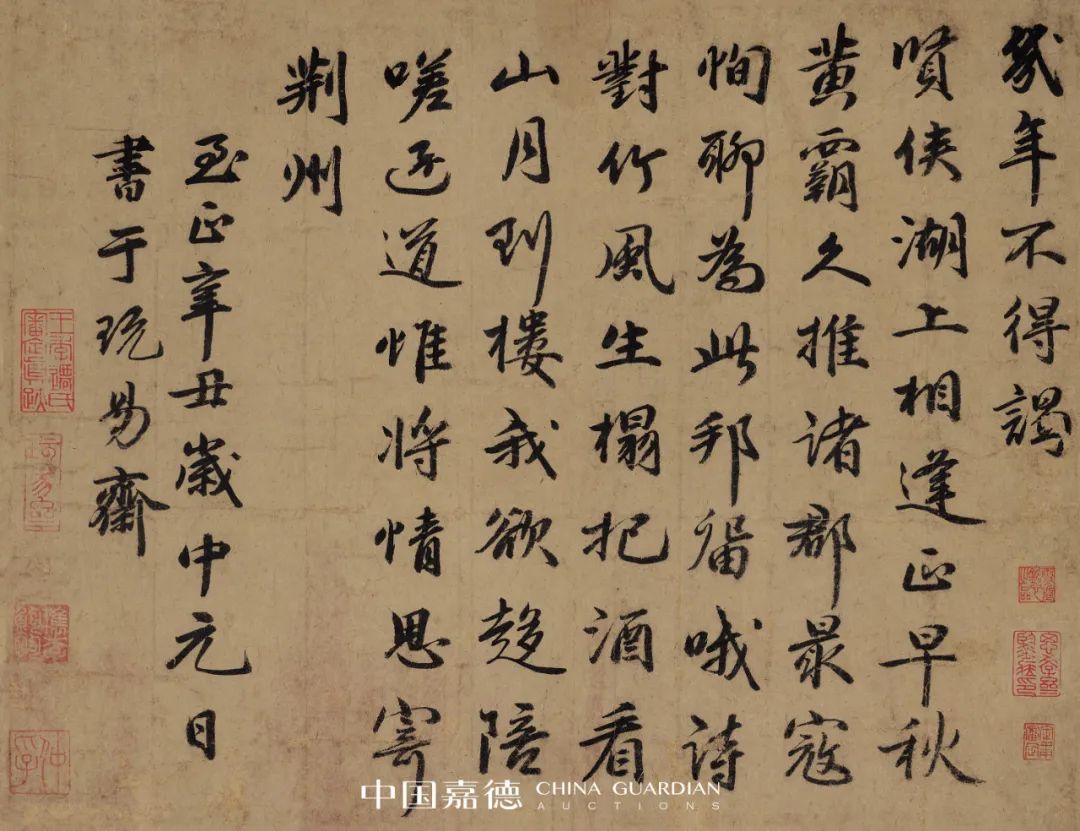 幾年不得謁
賢侯湖上相逢正早秋
黄霸久推諸郡最寇
恂聊為此邦留哦詩
對竹風生榻把酒看
山月到樓我欲趍陪
嗟遠道惟将情思寄
荆州
至正辛丑歲中元日
書于玩易齋
中国嘉德 CHINA GUARDIAN
AUCTIONS